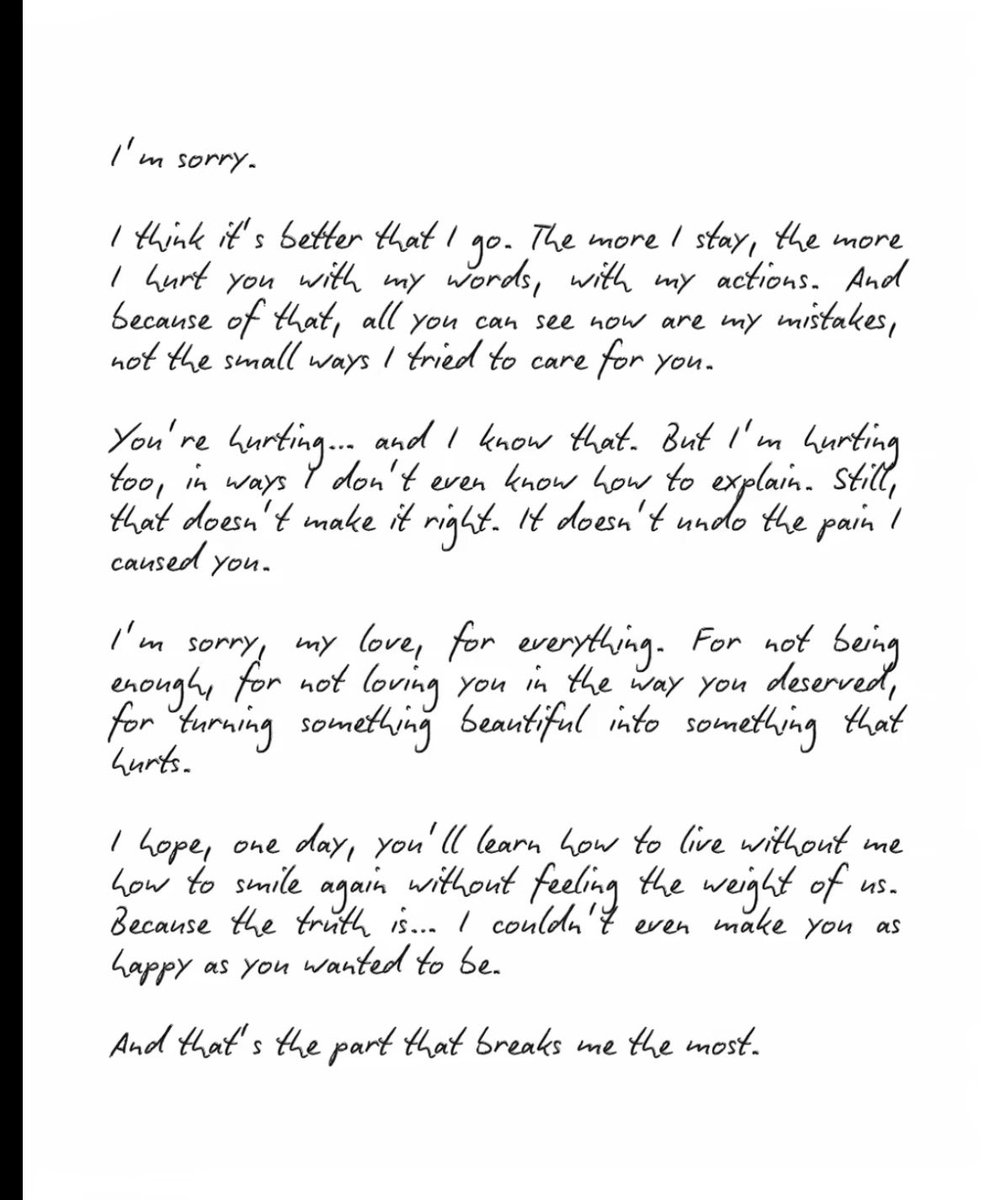 I'm sorry.
I think it's better that I go. The more I stay, the more
I hurt you with my words, with my actions. And
because of that, all you can see now are my mistakes,
not the small ways I tried to care for you.
You're hurting... and I know that. But I'm hurting
too, in ways I don't even know how to explain. Still,
that doesn't make it right. It doesn't undo the pain I
caused you.
I'm sorry, my love, for everything. For not being
enough, for not loving you in the way you deserved,
for turning something beautiful into something that
hurts.
I hope, one day, you'll learn how to live without me
how to smile again without feeling the weight of us.
Because the truth is... I couldn't even make you as
happy as you wanted to be.
And that's the part that breaks me the most.